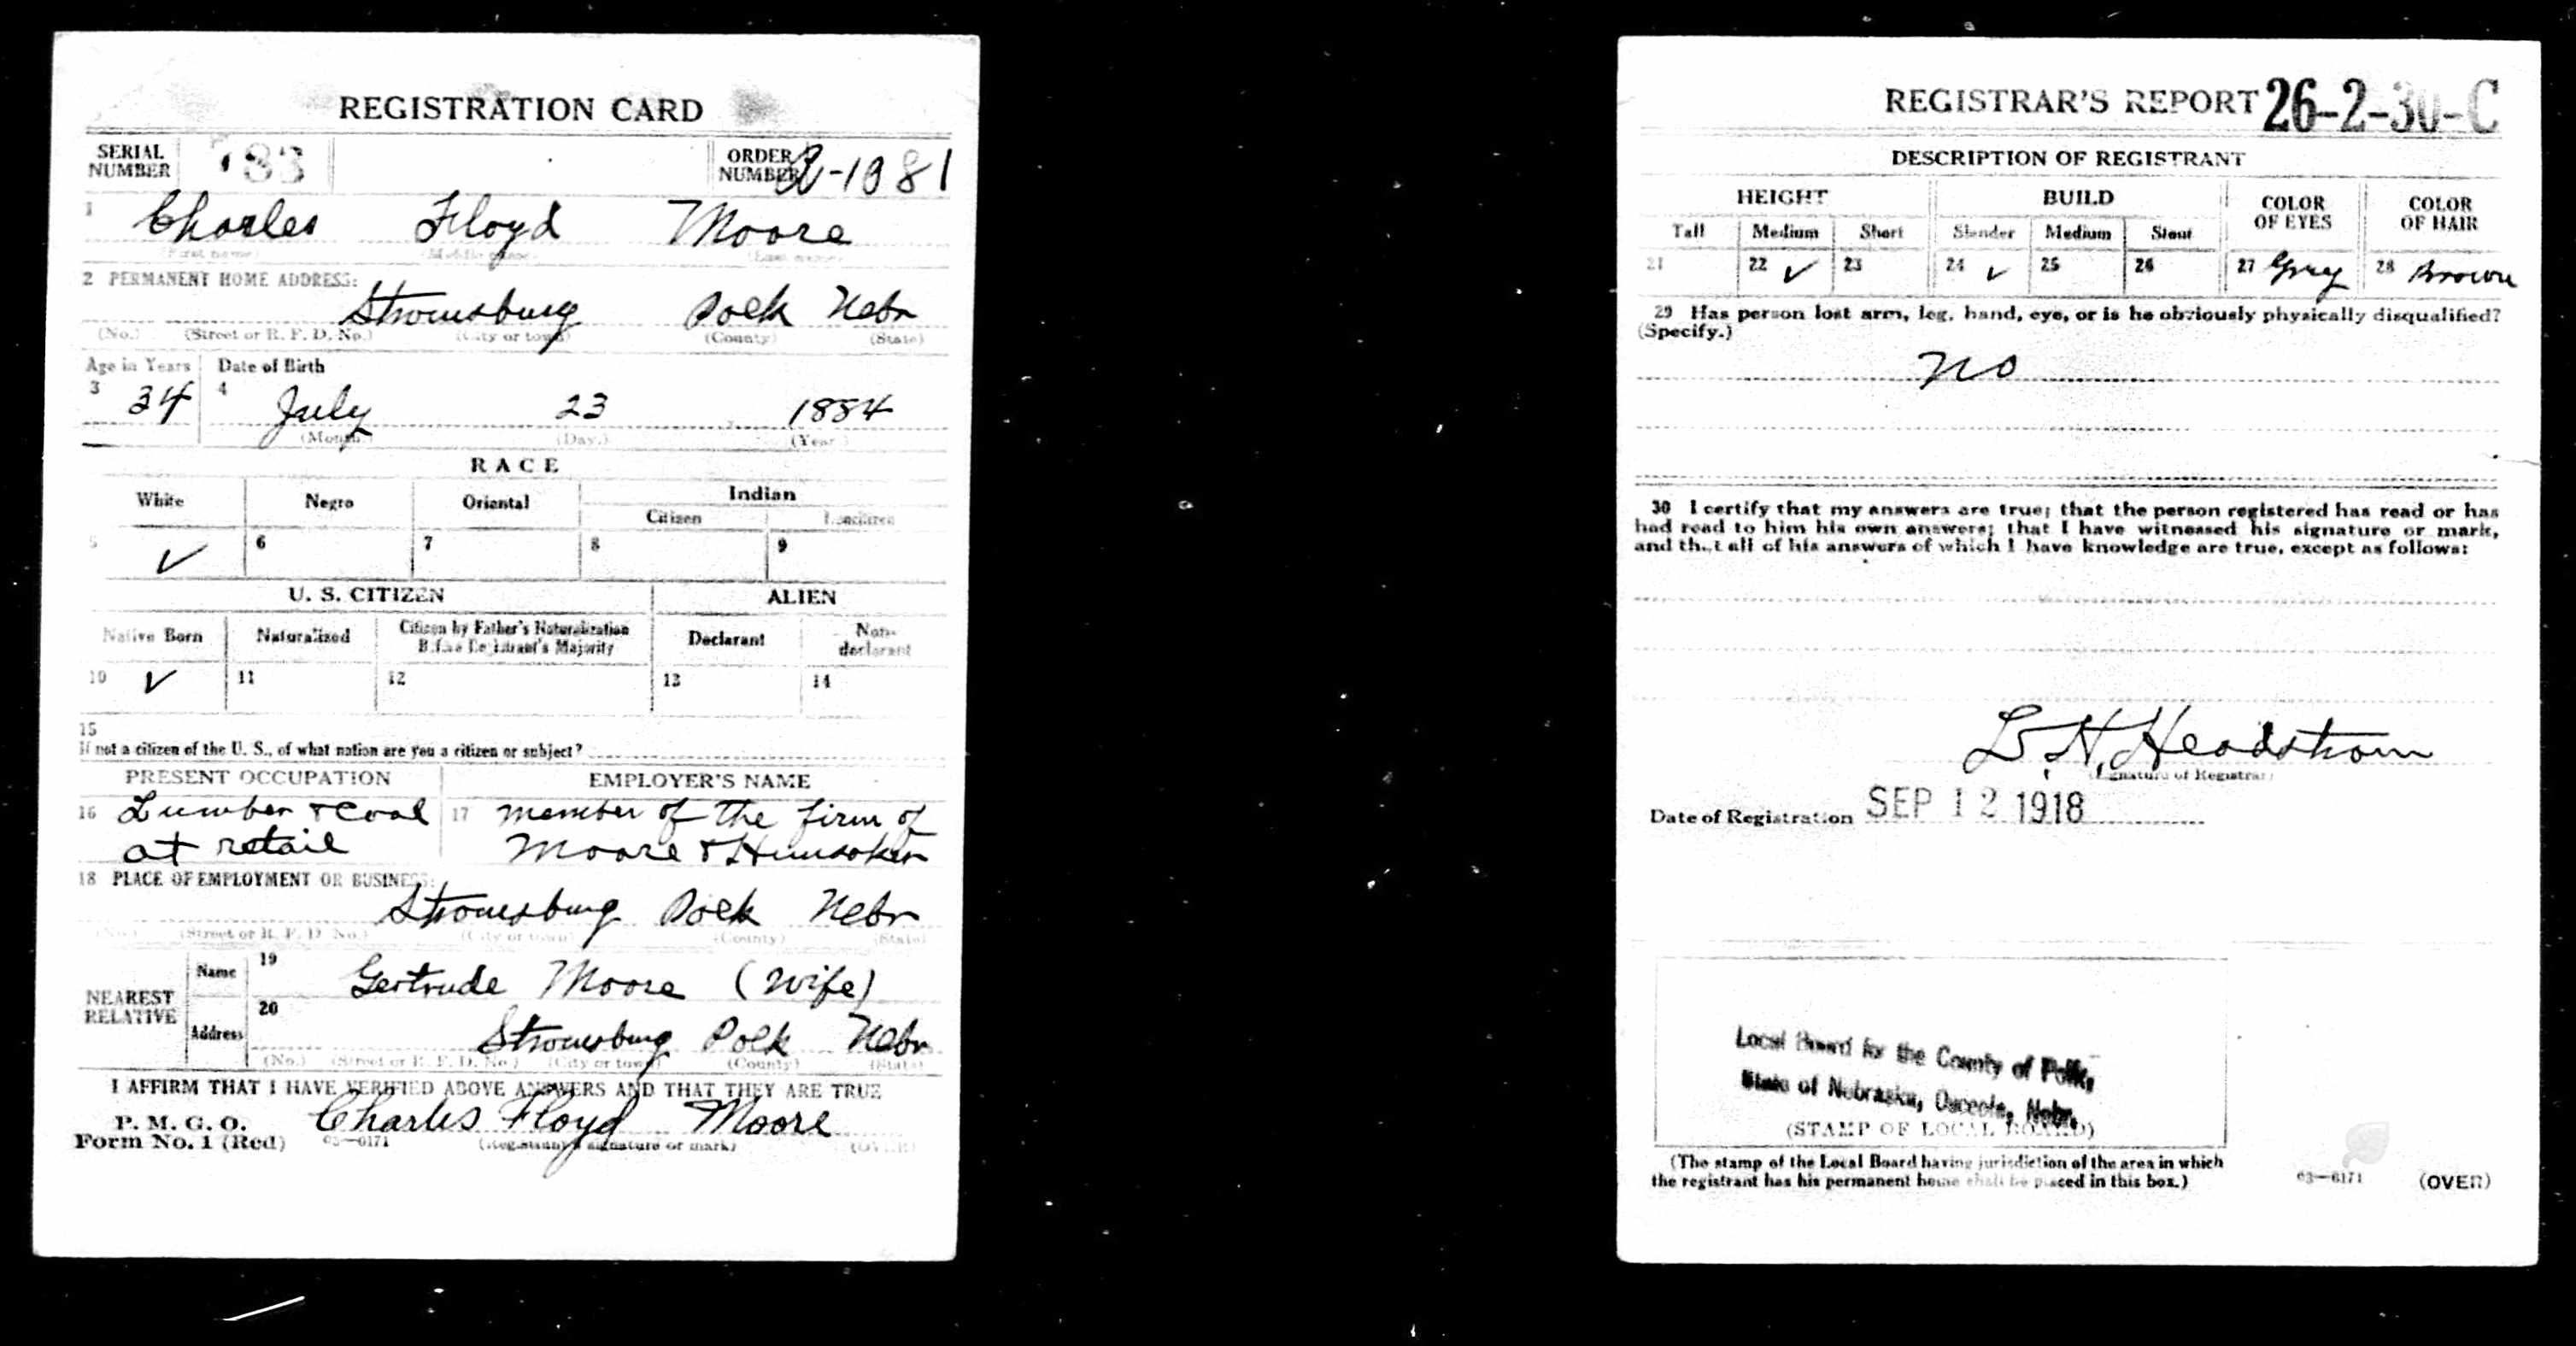 REGISTRATION CARD
SERIAL NUMBER 783 ORDER NUMBER A-1081
1 Charles Floyd Moore
(First name) (Middle name) (Last name)
2 PERMANENT HOME ADDRESS:
Stromsburg Polk Nebr
(No.) (Street or R. F. D. No.) (City or town) (County) (State)
Age in Years Date of Birth
3 34 4 July 23 1884
(Month.) (Day.) (Year.)
RACE
White Negro Oriental Indian
Citizen
5 ✓ 6 7 8 9
U. S. CITIZEN ALIEN
Native Born Naturalized Citizen by Father's Naturalization Before Registrant's Majority Declarant Non-declarant
10 ✓ 11 12 13 14
15
If not a citizen of the U. S., of what nation are you a citizen or subject?
PRESENT OCCUPATION EMPLOYER'S NAME
16 Lumber & Coal 17 member of the firm of
at retail Moore &
18 PLACE OF EMPLOYMENT OR BUSINESS:
Stromsburg Polk Nebr
(No.) (Street or R. F. D. No.) (City or town) (County) (State)
NEAREST RELATIVE
Name 19 Gertrude Moore (wife)
Address 20 Stromsburg Polk Nebr
(No.) (Street or R. F. D. No.) (City or town) (County) (State)
I AFFIRM THAT I HAVE VERIFIED ABOVE ANSWERS AND THAT THEY ARE TRUE
P. M. G. O.
Form No. 1 (Red) 03—6171 Charles Floyd Moore
(Registrant's signature or mark) (OVER)
REGISTRAR'S REPORT 26-2-30-C
DESCRIPTION OF REGISTRANT
HEIGHT BUILD COLOR OF EYES COLOR OF HAIR
Tall Medium Short Slender Medium Stout
21 22 ✓ 23 24 ✓ 25 26 27 Grey 28 Brown
29 Has person lost arm, leg, hand, eye, or is he obviously physically disqualified?
(Specify.)
no
30 I certify that my answers are true; that the person registered has read or has
had read to him his own answers; that I have witnessed his signature or mark,
and that all of his answers of which I have knowledge are true, except as follows:
L. H. Headstrom
(Signature of Registrar)
Date of Registration SEP 12 1918
Local Board for the County of Polk,
State of Nebraska, Osceola, Nebr.
(STAMP OF LOCAL BOARD)
(The stamp of the Local Board having jurisdiction of the area in which
the registrant has his permanent home shall be placed in this box.)
03—6171 (OVER)